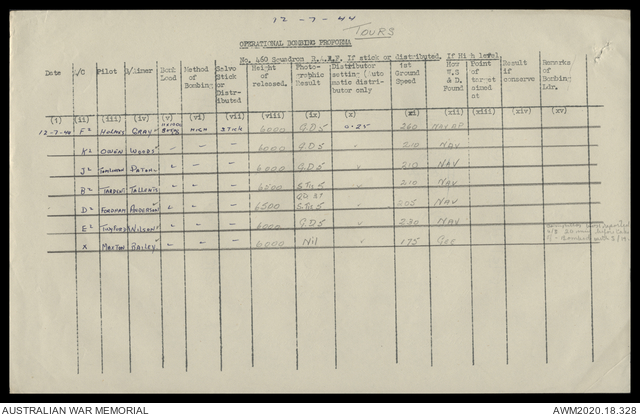 12-7-44
TOURS
OPERATIONAL BOMBING PROFORMA
No. 460 Squadron R.A.A.F. If stick or distributed. If High level.
Date A/C Pilot A/Aimer Bomb Load Method of Bombing Salvo Stick or Distributed Height of released. Photographic Result Distributor setting (automatic distributor only 1st Ground Speed How W.S & D. Found Point of target aimed at Result if conserve Remarks of Bombing Ldr.
(i) (ii) (iii) (iv) (v) (vi) (vii) (viii) (ix) (x) (xi) (xii) (xiii) (xiv) (xv)
12-7-44 F² HOLMES GRAY HIGH STICK 6000 G.D.5 0.25 260 NAV
K² OWEN WOODS " - - 6000 G.D.5 " 210 NAV
J² " - - 6000 G.D.5 " 210 NAV
B² TARDENT TALLENTS " - - 6500 STR 5 " 210 NAV
D² FORDHAM ANDERSON " - - 6500 STR 5 " 205 NAV
E² TWYFORD WILSON " - - 6000 G.D.5 " 230 NAV
X MAXTON BAILEY " - - 6000 Nil " 175 GEE
AUSTRALIAN WAR MEMORIAL
AWM2020.18.328